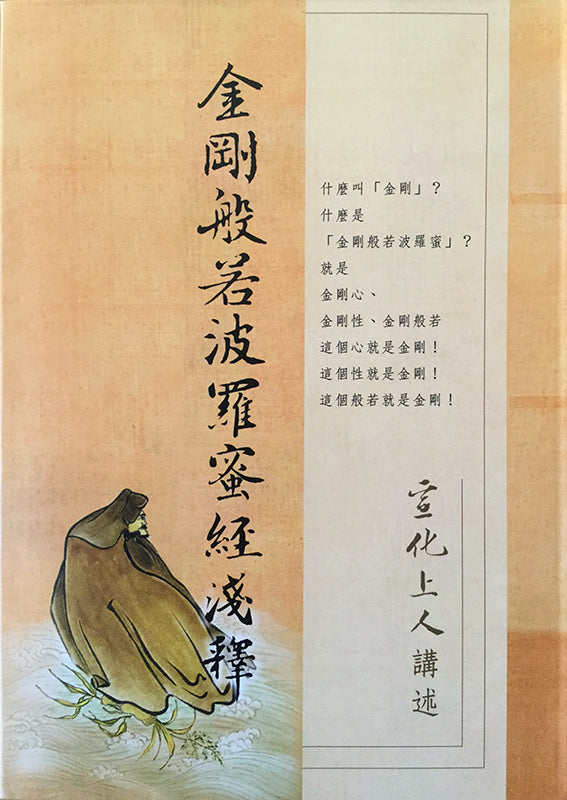 金剛般若波羅蜜經淺釋
什麼叫「金剛」？
什麼是
「金剛般若波羅蜜」？
就是
金剛心、
金剛性、金剛般若
這個心就是金剛！
這個性就是金剛！
這個般若就是金剛！
宣化上人講述